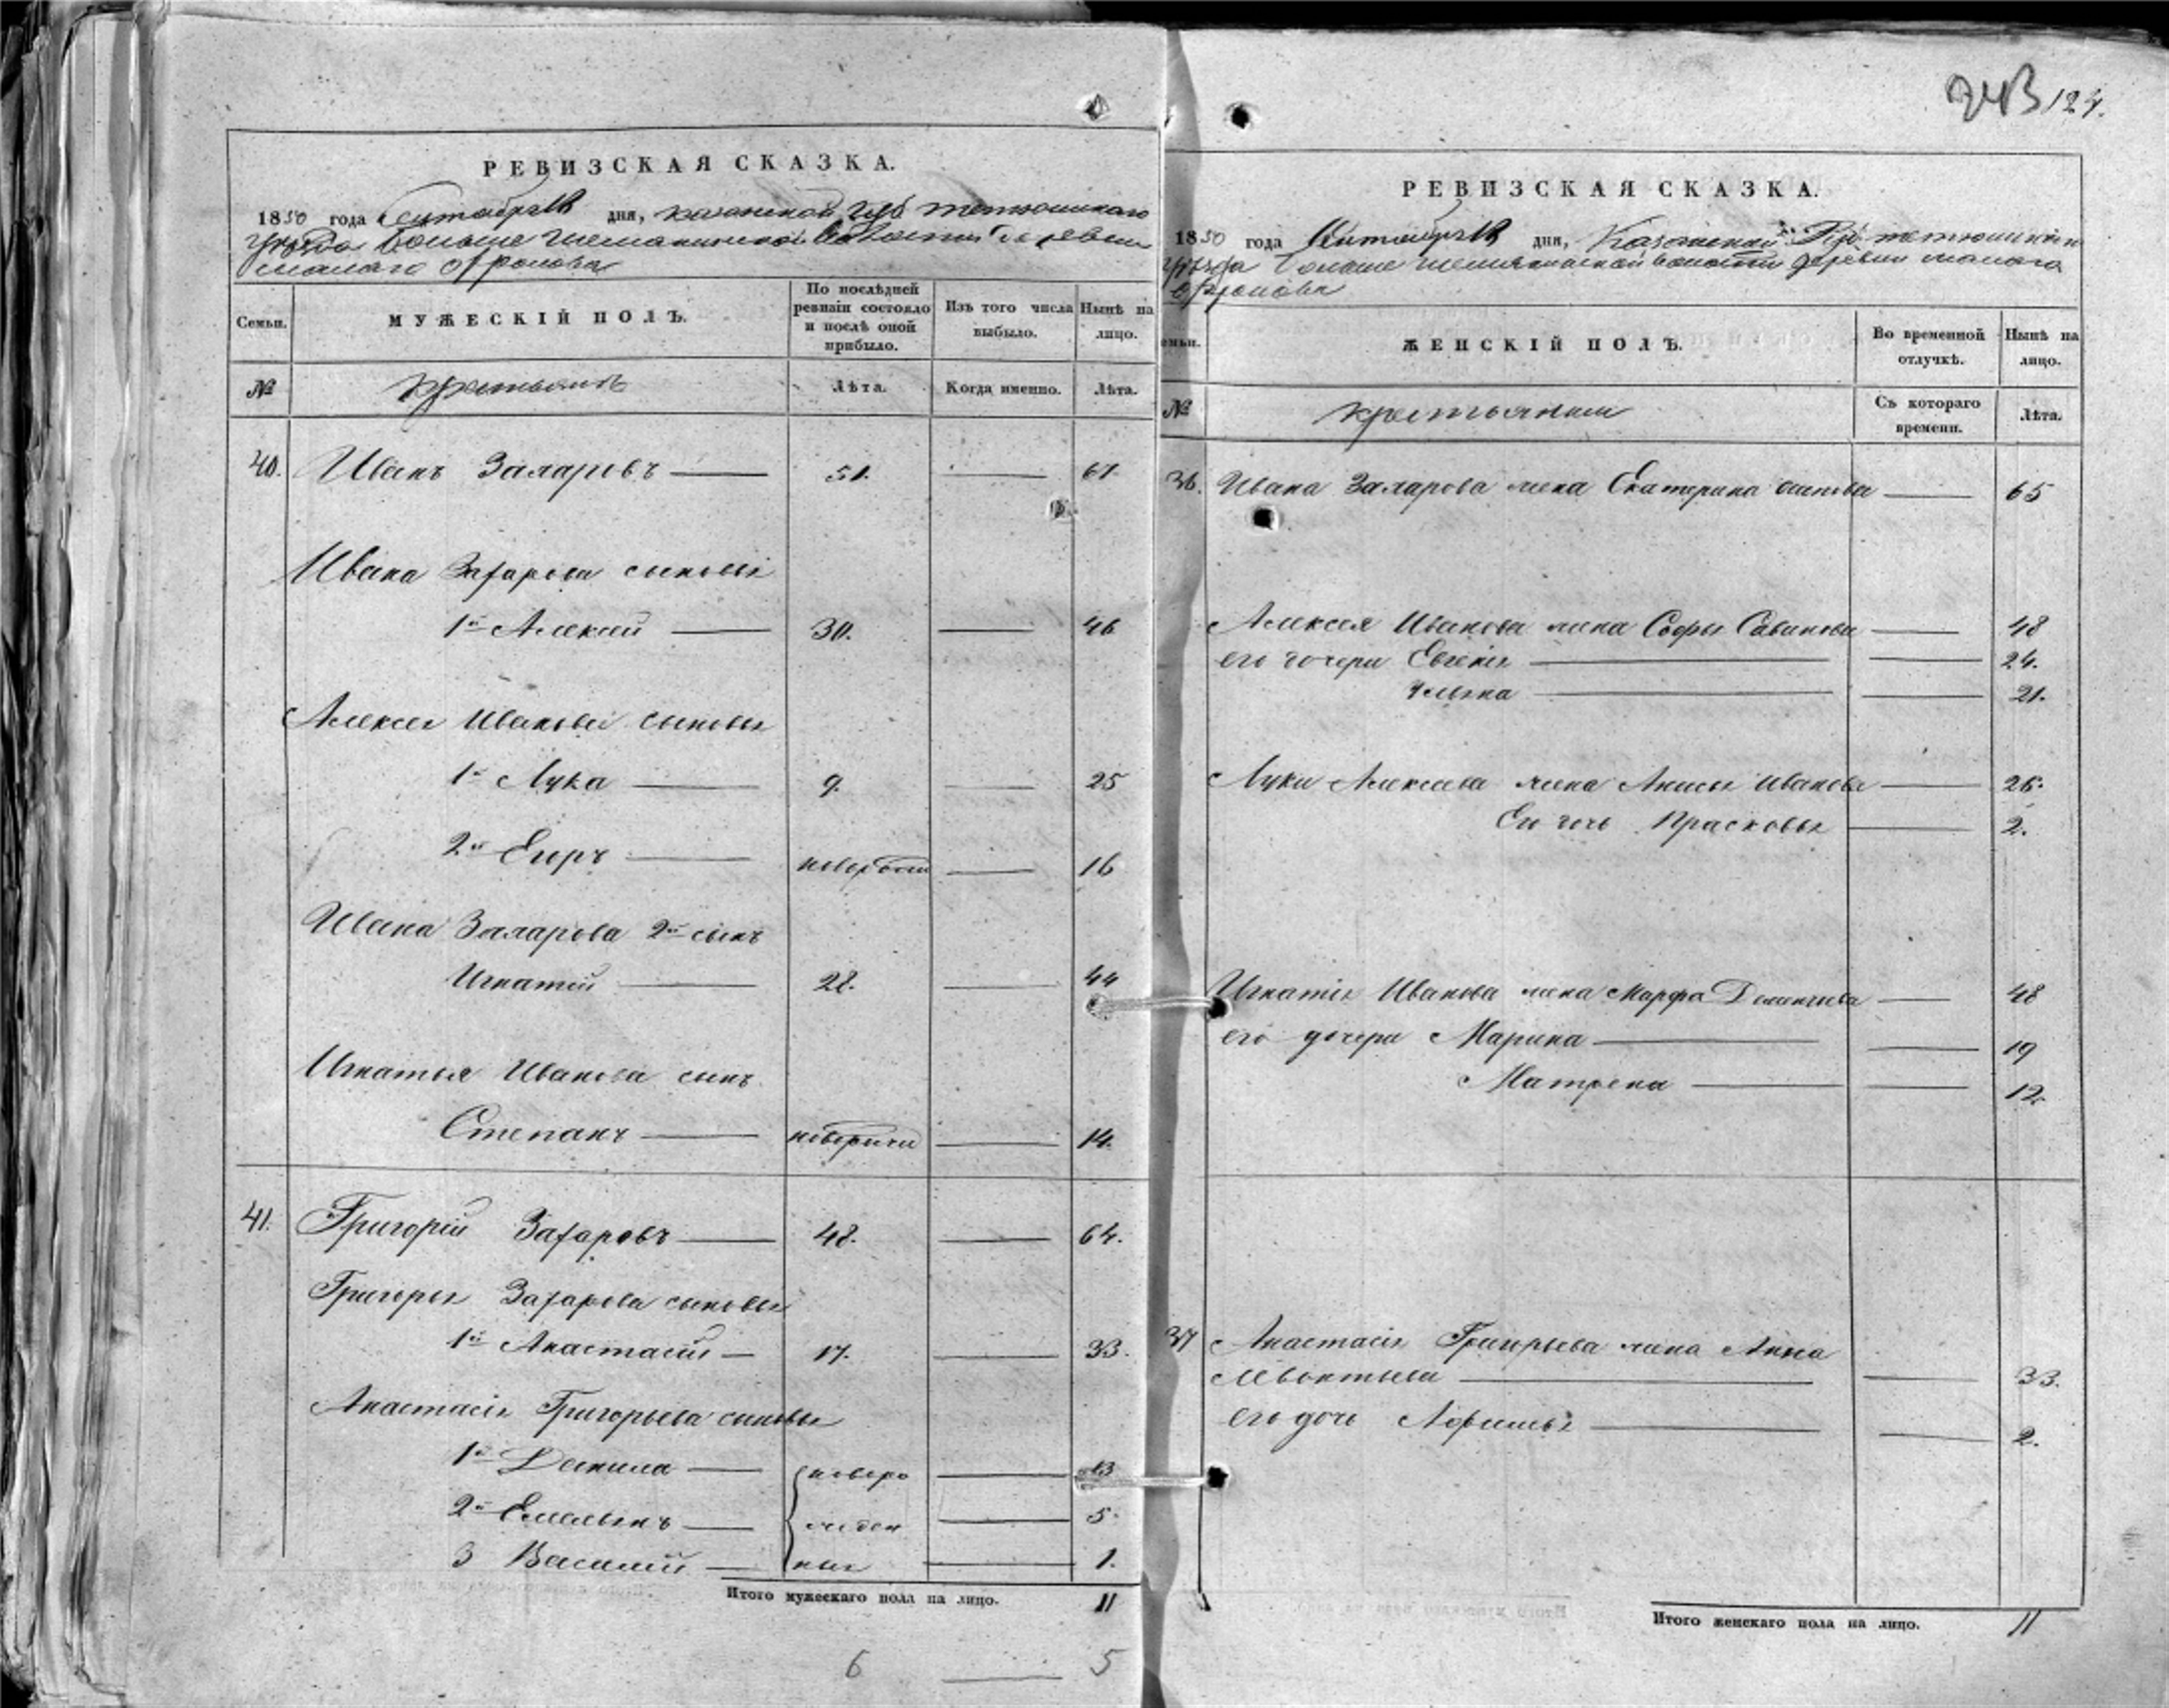 243 124.
РЕВИЗСКАЯ СКАЗКА.
1850 года Сентября дня, Казанской Губ Тетюшскаго
уѣзда Больше Шемякинской Волости Деревни
малаго Фролова
Семьи. МУЖЕСКІЙ ПОЛЪ. По послѣдней ревизіи состояло и послѣ оной прибыло. Изъ того числа выбыло. Нынѣ на лицо.
№ крестьянъ Лѣта. Когда именно. Лѣта.
40. Иванъ Захаровъ 51. 67.
Ивана Захарова сыновья
1й Алексей 30. 46
Алексея Иванова сыновья
1й Лука 9. 25
2й Егоръ 16
Ивана Захарова 2й сынъ
Игнатий 28. 44
Игнатья Иванова сынъ
Степанъ 14.
41. Григорій Захаровъ 48. 64.
Григорья Захарова сыновья
1й Анастасий 17. 33.
Анастасія Григорьева сыновья
1й Данила новоро 13
2й Емельянъ жден 5.
3 Василий ные 1.
Итого мужескаго пола на лицо. 11
6 5
РЕВИЗСКАЯ СКАЗКА.
1850 года Сентября дня, Казанской Губ. Тетюшскаго
уѣзда Больше Шемякинской волости деревни малаго
Фролова
семьи. ЖЕНСКІЙ ПОЛЪ. Во временной отлучкѣ. Нынѣ на лицо.
№ крестьянки Съ котораго времени. Лѣта.
36. Ивана Захарова жена Екатерина 65
Алексея Иванова жена Софья Савинова 48
его дочери Евгения 24.
21.
Луки Алексеева жена Анисья Иванова 26.
Его дочь Прасковья 2.
Игнатія Иванова жена Марфа Дементиева 48
его дочери Марина 19
Матрена 12.
37 Анастасія Григорьева жена Анна
33.
Его дочь Афимья 2.
Итого женскаго пола на лицо. 11